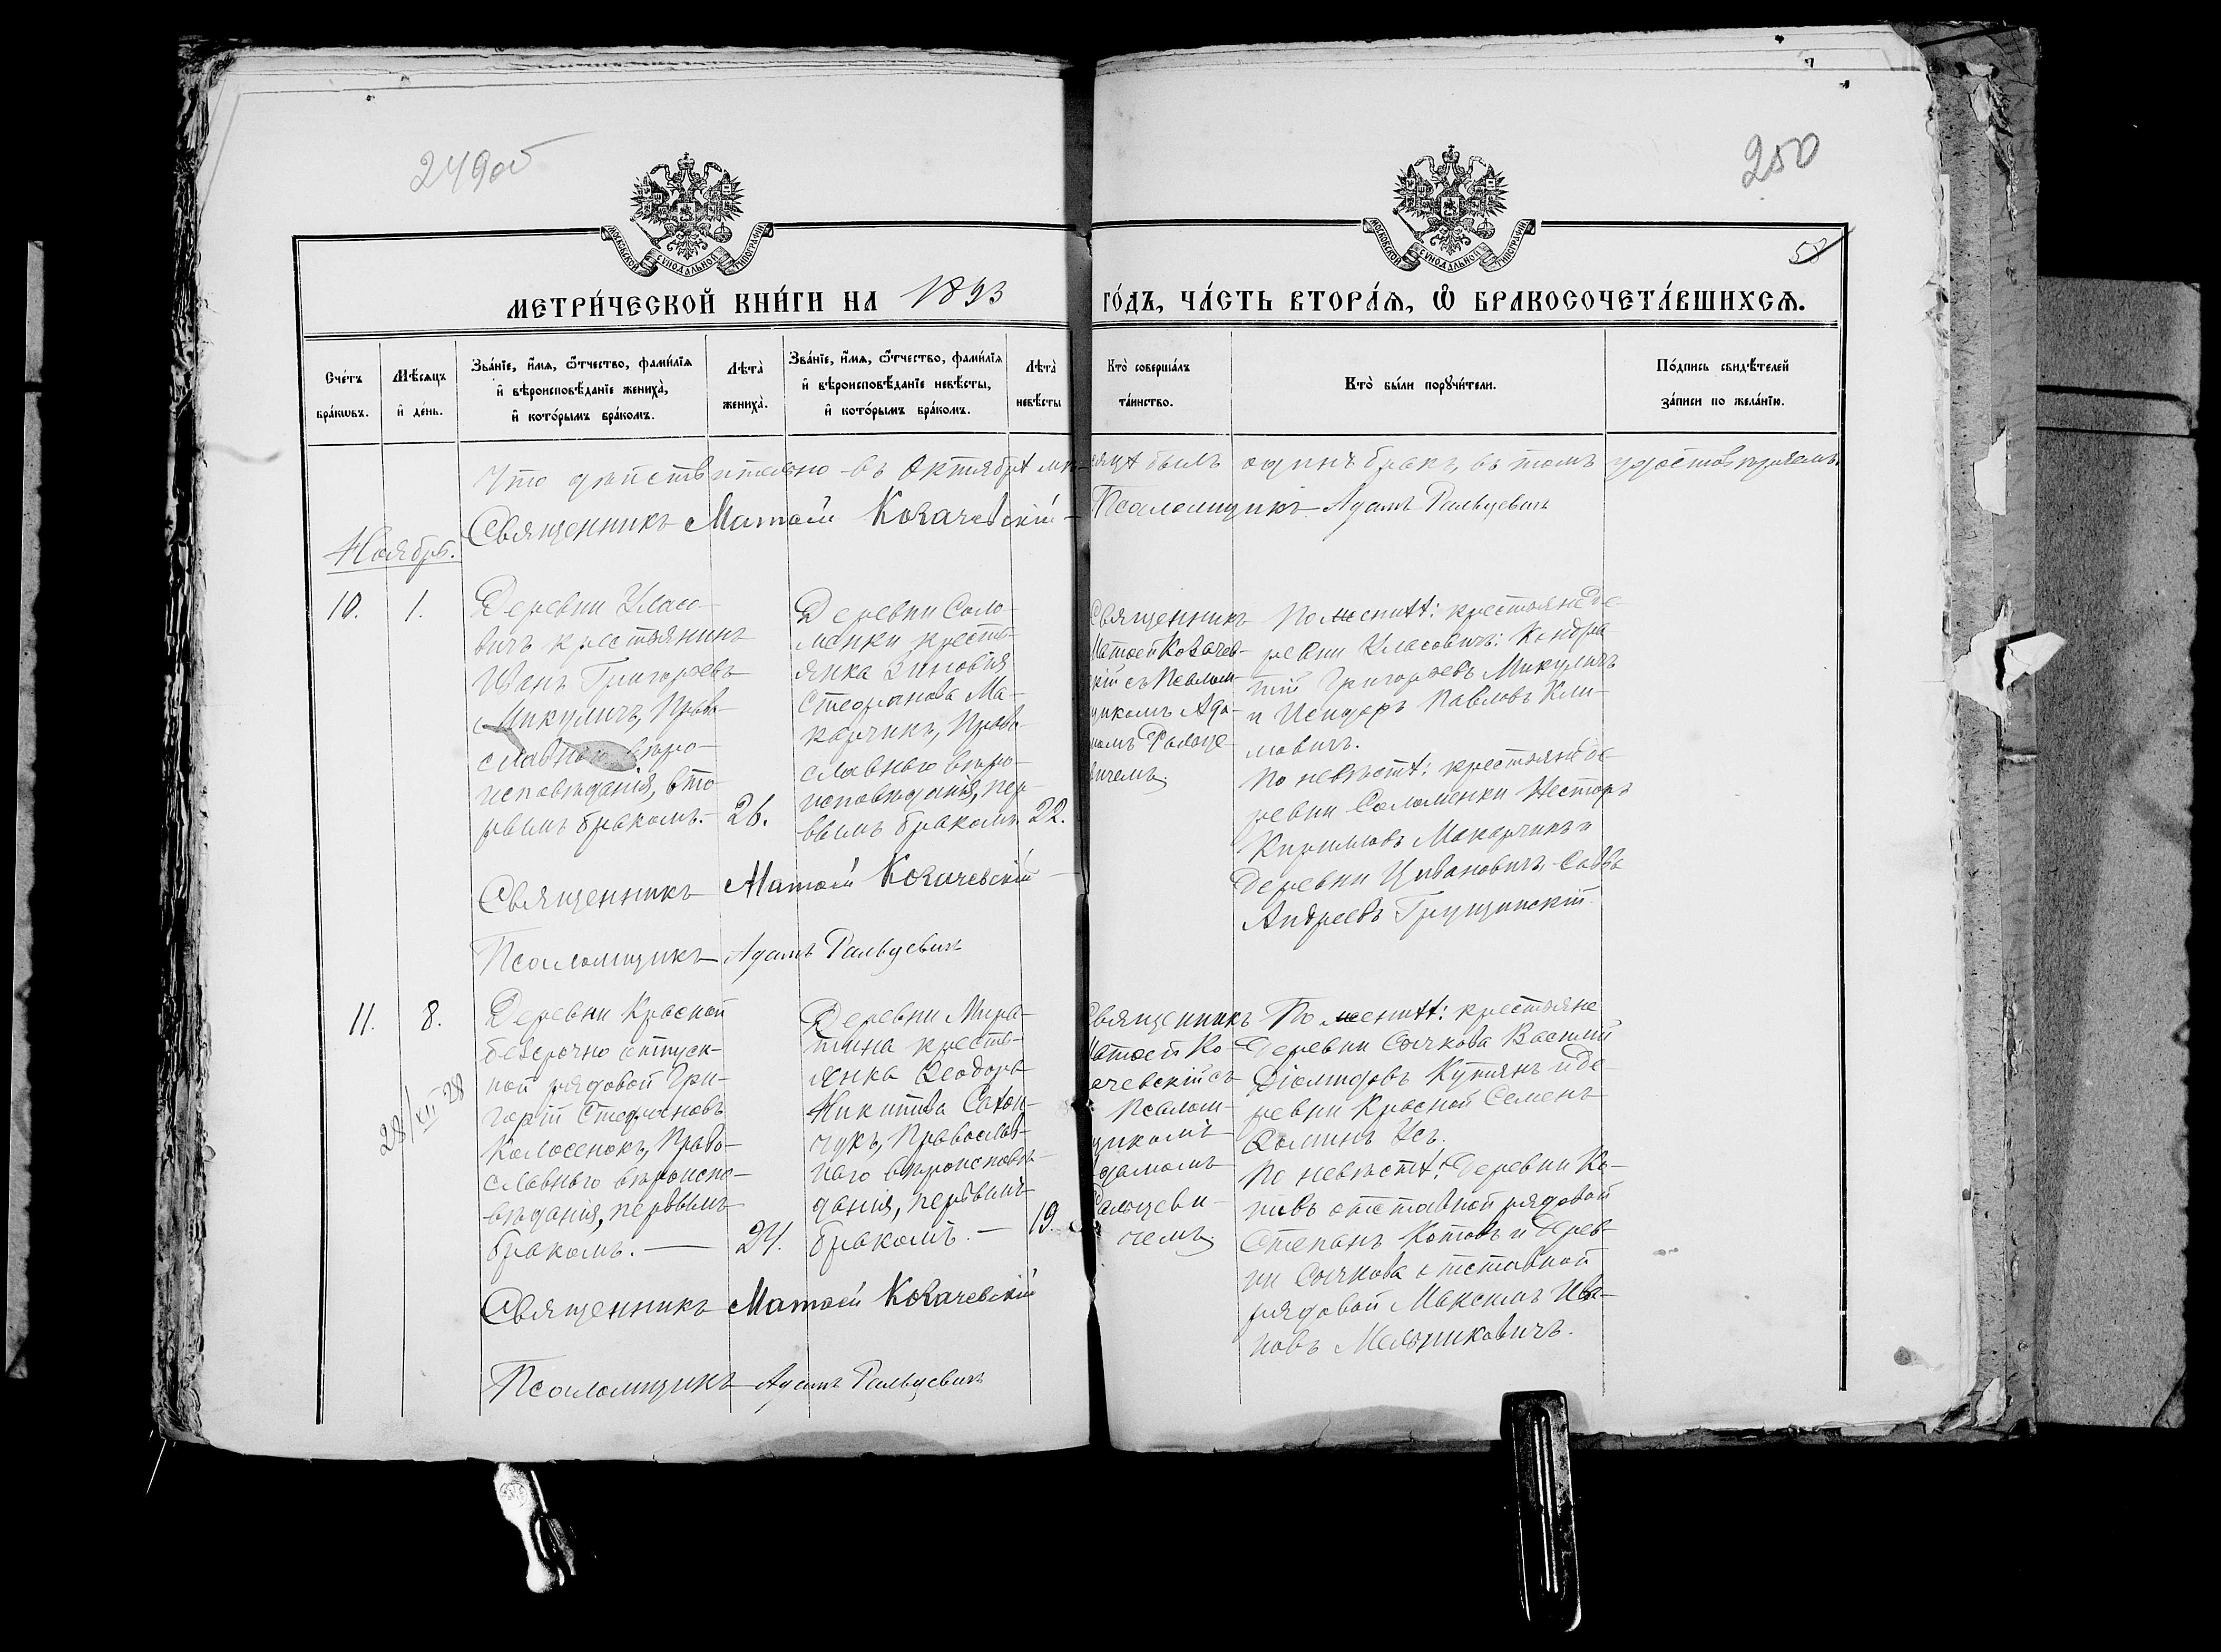 249об
250
58
МЕТРИ́ЧЕСКОЙ КНИ́ГИ НА 1893 ГО́ДЪ, ЧА́СТЬ ВТОРА́Я, Ѡ҆ БРАКОСОЧЕТА́ВШИХСЯ.
МОСКОВСКОЙ СѴНОДАЛЬНОЙ ТИПОГРАФІИ
МОСКОВСКОЙ СѴНОДАЛЬНОЙ ТИПОГРАФІИ
Сче́тъ
бра́кѡвъ.
Мѣ́сяцъ
и҆ де́нь.
Зва́нїе, и҆́мя, ѻ҆́тчество, фами́лїя
и҆ вѣроисповѣ́данїе жениха̀,
и҆ кото́рымъ бра́комъ.
Лѣта̀
жениха̀.
Зва́нїе, и҆́мя, ѻ҆́тчество, фами́лїя
и҆ вѣроисповѣ́данїе невѣ́сты,
и҆ кото́рымъ бра́комъ.
Лѣта̀
невѣ́сты
Кто̀ соверша́лъ
та́инство.
Кто̀ бы́ли порꙋчи́тели.
По́дпись свидѣ́телей
за́писи по жела́нїю.
Что дѣйствительно въ Октябрѣ мѣсяцѣ былъ одинъ бракъ, въ томъ удостовѣряемъ
Священникъ Матѳей Ковачевскій Псаломщикъ Адамъ Ральцевичъ
Ноябрь.
10.
1.
Деревни Уласо-
вичъ крестьянинъ
Иванъ Григорьевъ
Микуличъ, Право-
славнаго вѣро-
исповѣданія, вто-
рымъ бракомъ.
26.
Деревни Соло-
менки кресть-
янка Зиновія
Стефанова Ма-
карчикъ, Право-
славнаго вѣро-
исповѣданія, пер-
вымъ бракомъ.
22.
Священникъ
Матѳей Ковачев-
скій съ Псалом-
щикомъ Ада-
момъ Ральце-
вичемъ.
По женихѣ: крестьяне де-
ревни Уласовичъ: Кондра
тій Григорьевъ Микуличъ
и Исидоръ Павловъ Кли-
мовичъ.
По невѣстѣ: крестьяне де-
ревни Соломенки Несторъ
Кирилловъ Макарчикъ и
деревни Цивановичъ Савва
Андреевъ Грущинскій
Священникъ Матѳей Ковачевскій
Псаломщикъ Адамъ Ральцевичъ
11.
8.
28/XII 28
Деревни Красной
безсрочно отпуск-
ной рядовой Гри-
горій Стефановъ
Колосенокъ, Право-
славнаго вѣроиспо-
вѣданія, первымъ
бракомъ.
24.
Деревни
кресть-
янка Ѳеодора
Никитова
чукъ, Православ-
наго вѣроисповѣ-
данія, первымъ
бракомъ.
19.
Священникъ
Матѳей Ко-
вачевскій съ
Псалом-
щикомъ
Адамомъ
Ральцеви-
чемъ.
По женихѣ: крестьяне
деревни Сочкова Василій
Діомидовъ и де-
ревни Красной Семенъ
Ѳоминъ Усъ.
По невѣстѣ: деревни Ка-
отставной рядовой
Степанъ Котовъ и дерев-
ни Сочкова отставной
рядовой Максимъ Ива-
новъ Мельниковичъ.
Священникъ Матѳей Ковачевскій
Псаломщикъ Адамъ Ральцевичъ